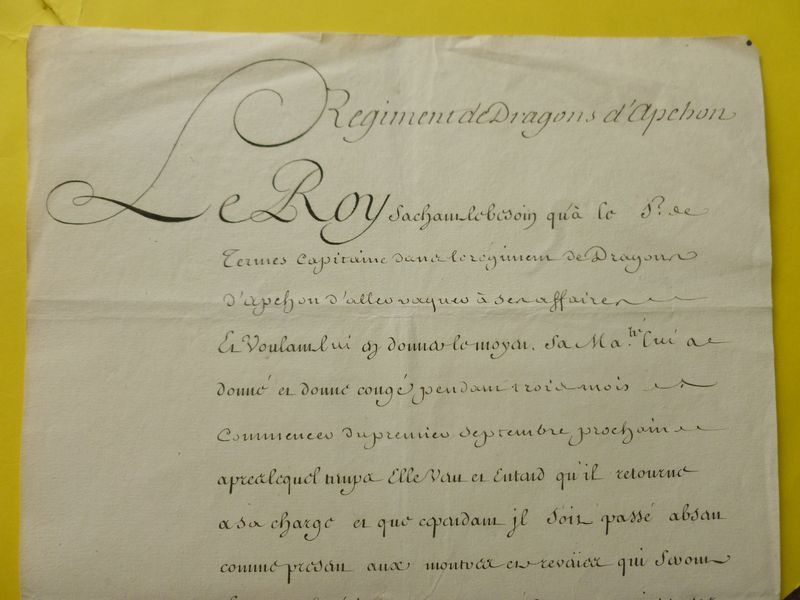 Regiment de Dragons d'Apchon
Le Roy sachant le besoin qu'à le Sr. de
Termes Capitaine dans le régiment de Dragons
d'Apchon d'aller vaquer à ses affaires
Et Voulant lui en donner le moyen, Sa Ma.té lui a
donné et donne congé pendant trois mois
Commencer du premier septembre prochain
apres lequel temps Elle Veut et Entend qu'il retourne
a sa charge et que cependant jl soit passé absent
comme present aux montres et reveües qui seront